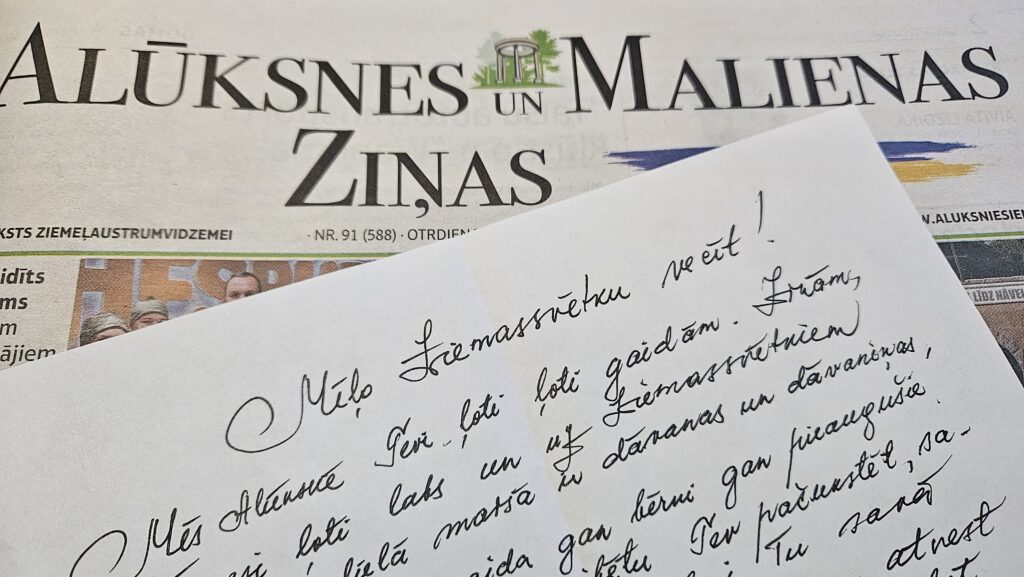 ALŪKSNES UN MALIENAS
ZIŅAS
KSTS ZIEMEĻAUSTRUMVIDZEMEI
· NR. 91 (588) · OTRDIEN
W.ALUKSNIESIEM
idīts
ms
m
ājiem
LĪDZ HĀVEL
Mīļo Ziemassvētku vecīt!
Mēs Alūksnē Tevi ļoti, ļoti gaidām. Zinām,
esi ļoti labs un uz Ziemassvētkiem
lielā maisā ir dāvanas un dāvaniņas,
gaida gan bērni gan pieaugušie.
Tev pačukstēt, sa-
Tu savā
atnest